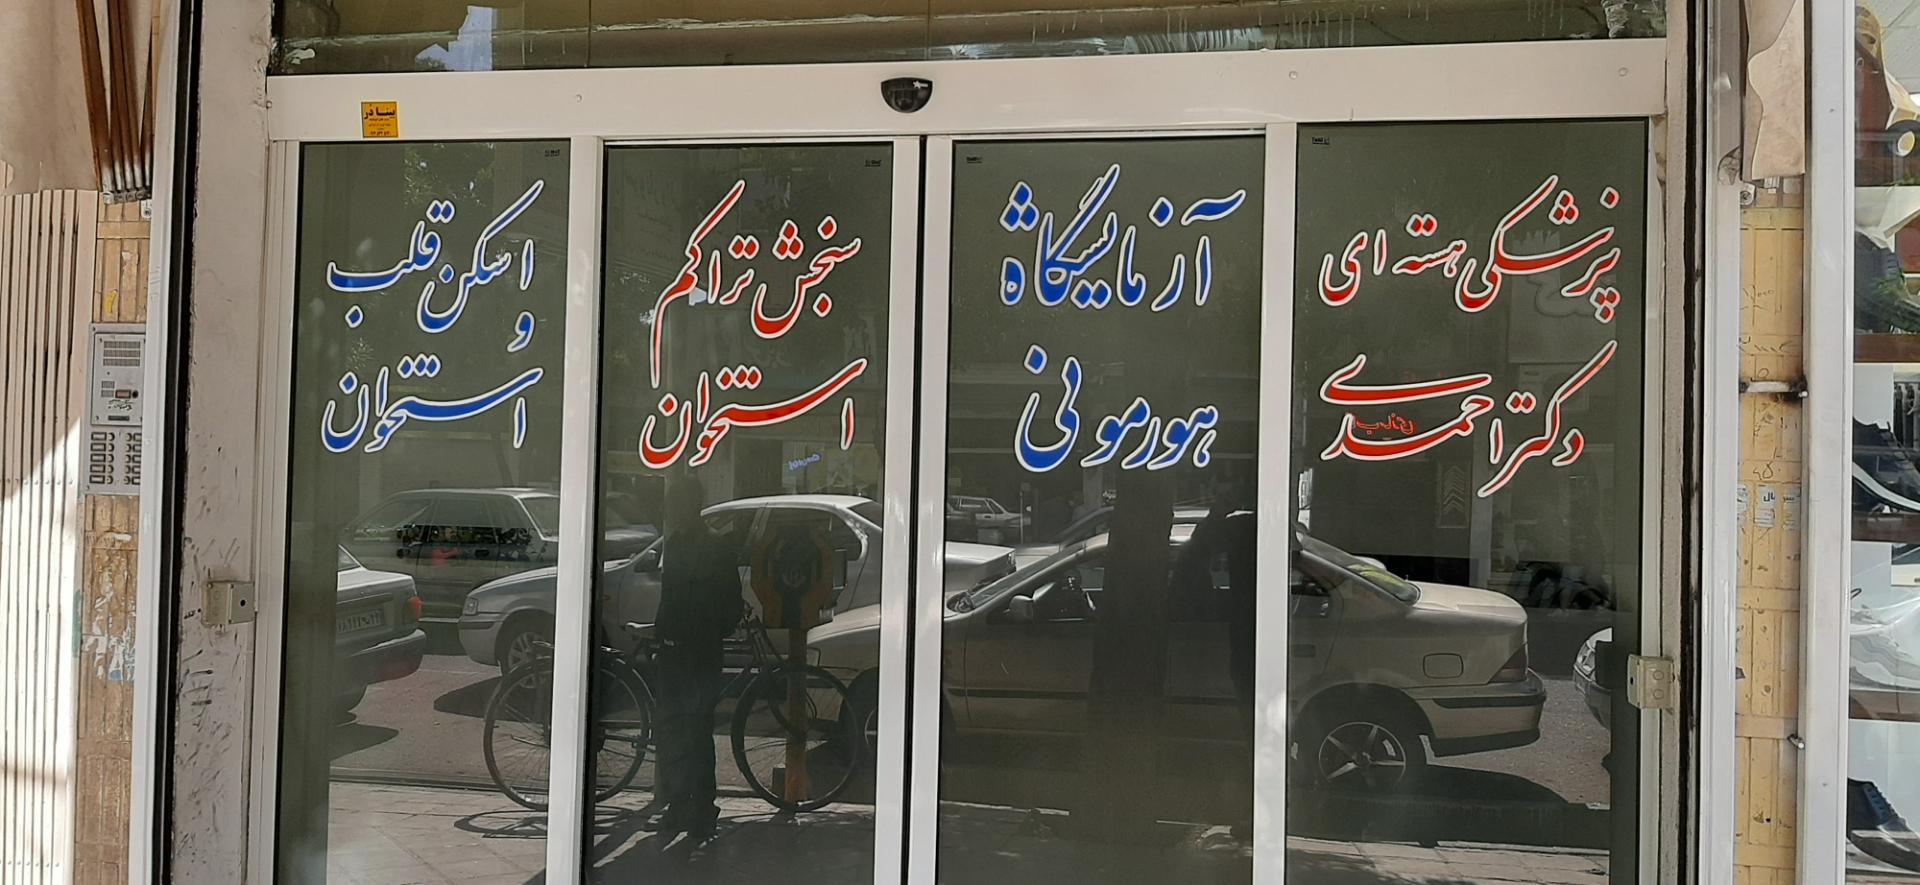 پزشکی هسته ای
دکتر احمدی
آزمایشگاه
هورمونی
سنجش تراکم
استخوان
اسکن قلب
و
استخوان
بینا دُر